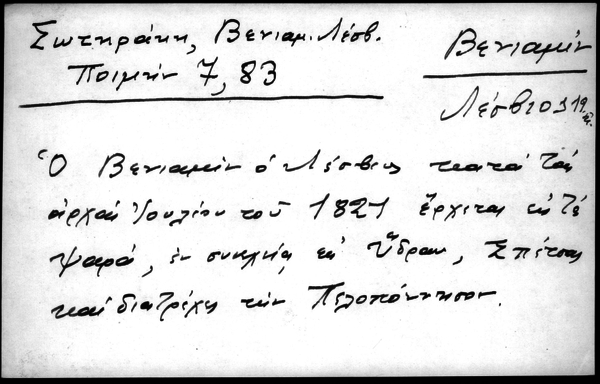 Σωτηράκη, Βενιαμ. Λέσβ.
Ποιμήν 7, 83
Βενιαμίν
Λέσβιος 19
Ὁ Βενιαμίν ὁ Λέσβιος κατά τάς
ἀρχάς Ἰουλίου τοῦ 1821 ἔρχεται εἰς τά
Ψαρά, ἐν συνεχείᾳ εἰς Ὕδραν, Σπέτσας
καί διατρέχει τήν Πελοπόννησον.